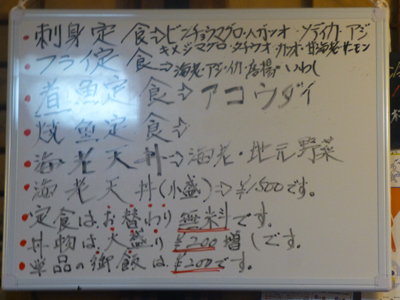 刺身定食⇨ビンチョウマグロ・メカジキ・ソデイカ・アジ
キメジマグロ・タチウオ・カツオ・甘海老・サーモン
フライ定食⇨海老・アジ・イカ・唐揚 いわし
煮魚定食⇨アコウダイ
焼魚定食⇨
海老天丼⇨海老・地元野菜
海老天丼(小盛)⇨¥1500です。
定食はお替わり無料です。
丼物は大盛り¥200増しです。
単品の御飯は¥200です。